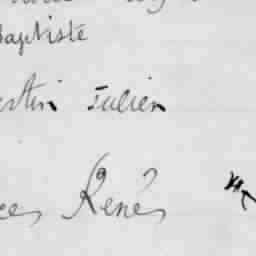 Baptiste
estin Julien
ces René